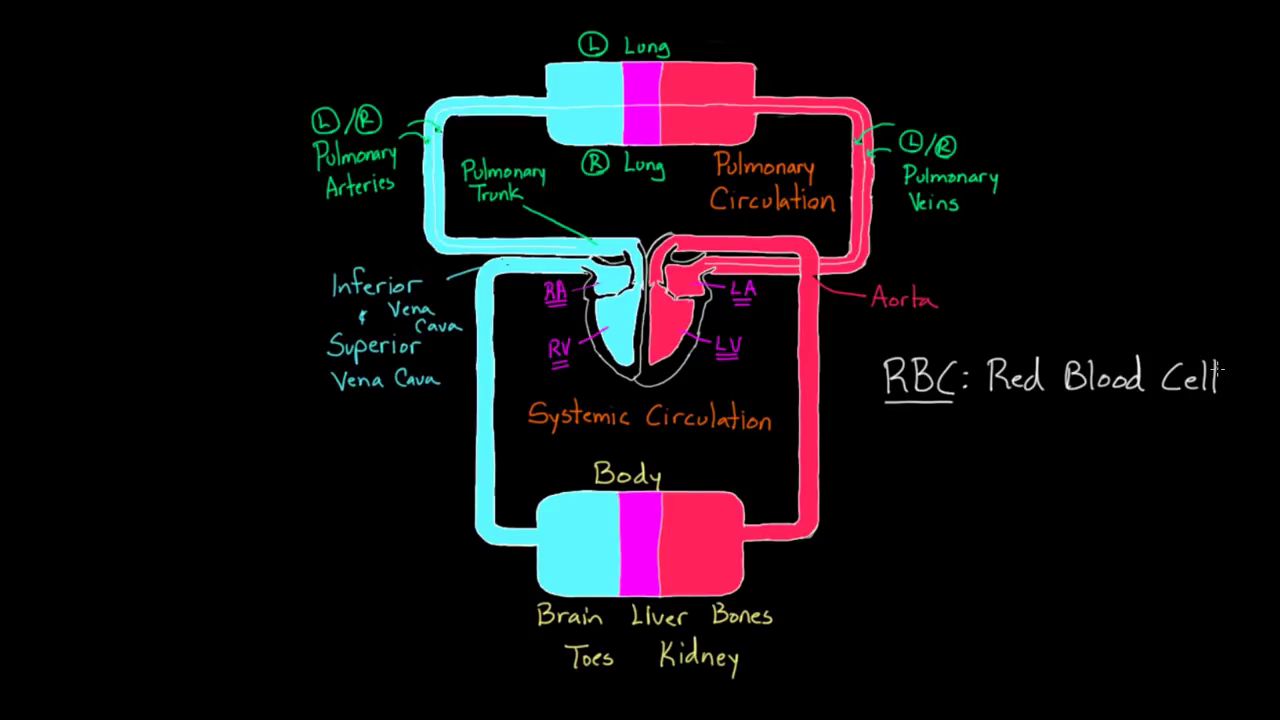 L Lung
L/R
Pulmonary
Arteries
Pulmonary
Trunk
R Lung
Pulmonary
Circulation
L/R
Pulmonary
Veins
Inferior
& Vena
Cava
Superior
Vena Cava
RA
LA
RV
LV
Aorta
RBC: Red Blood Cell
Systemic Circulation
Body
Brain Liver Bones
Toes Kidney